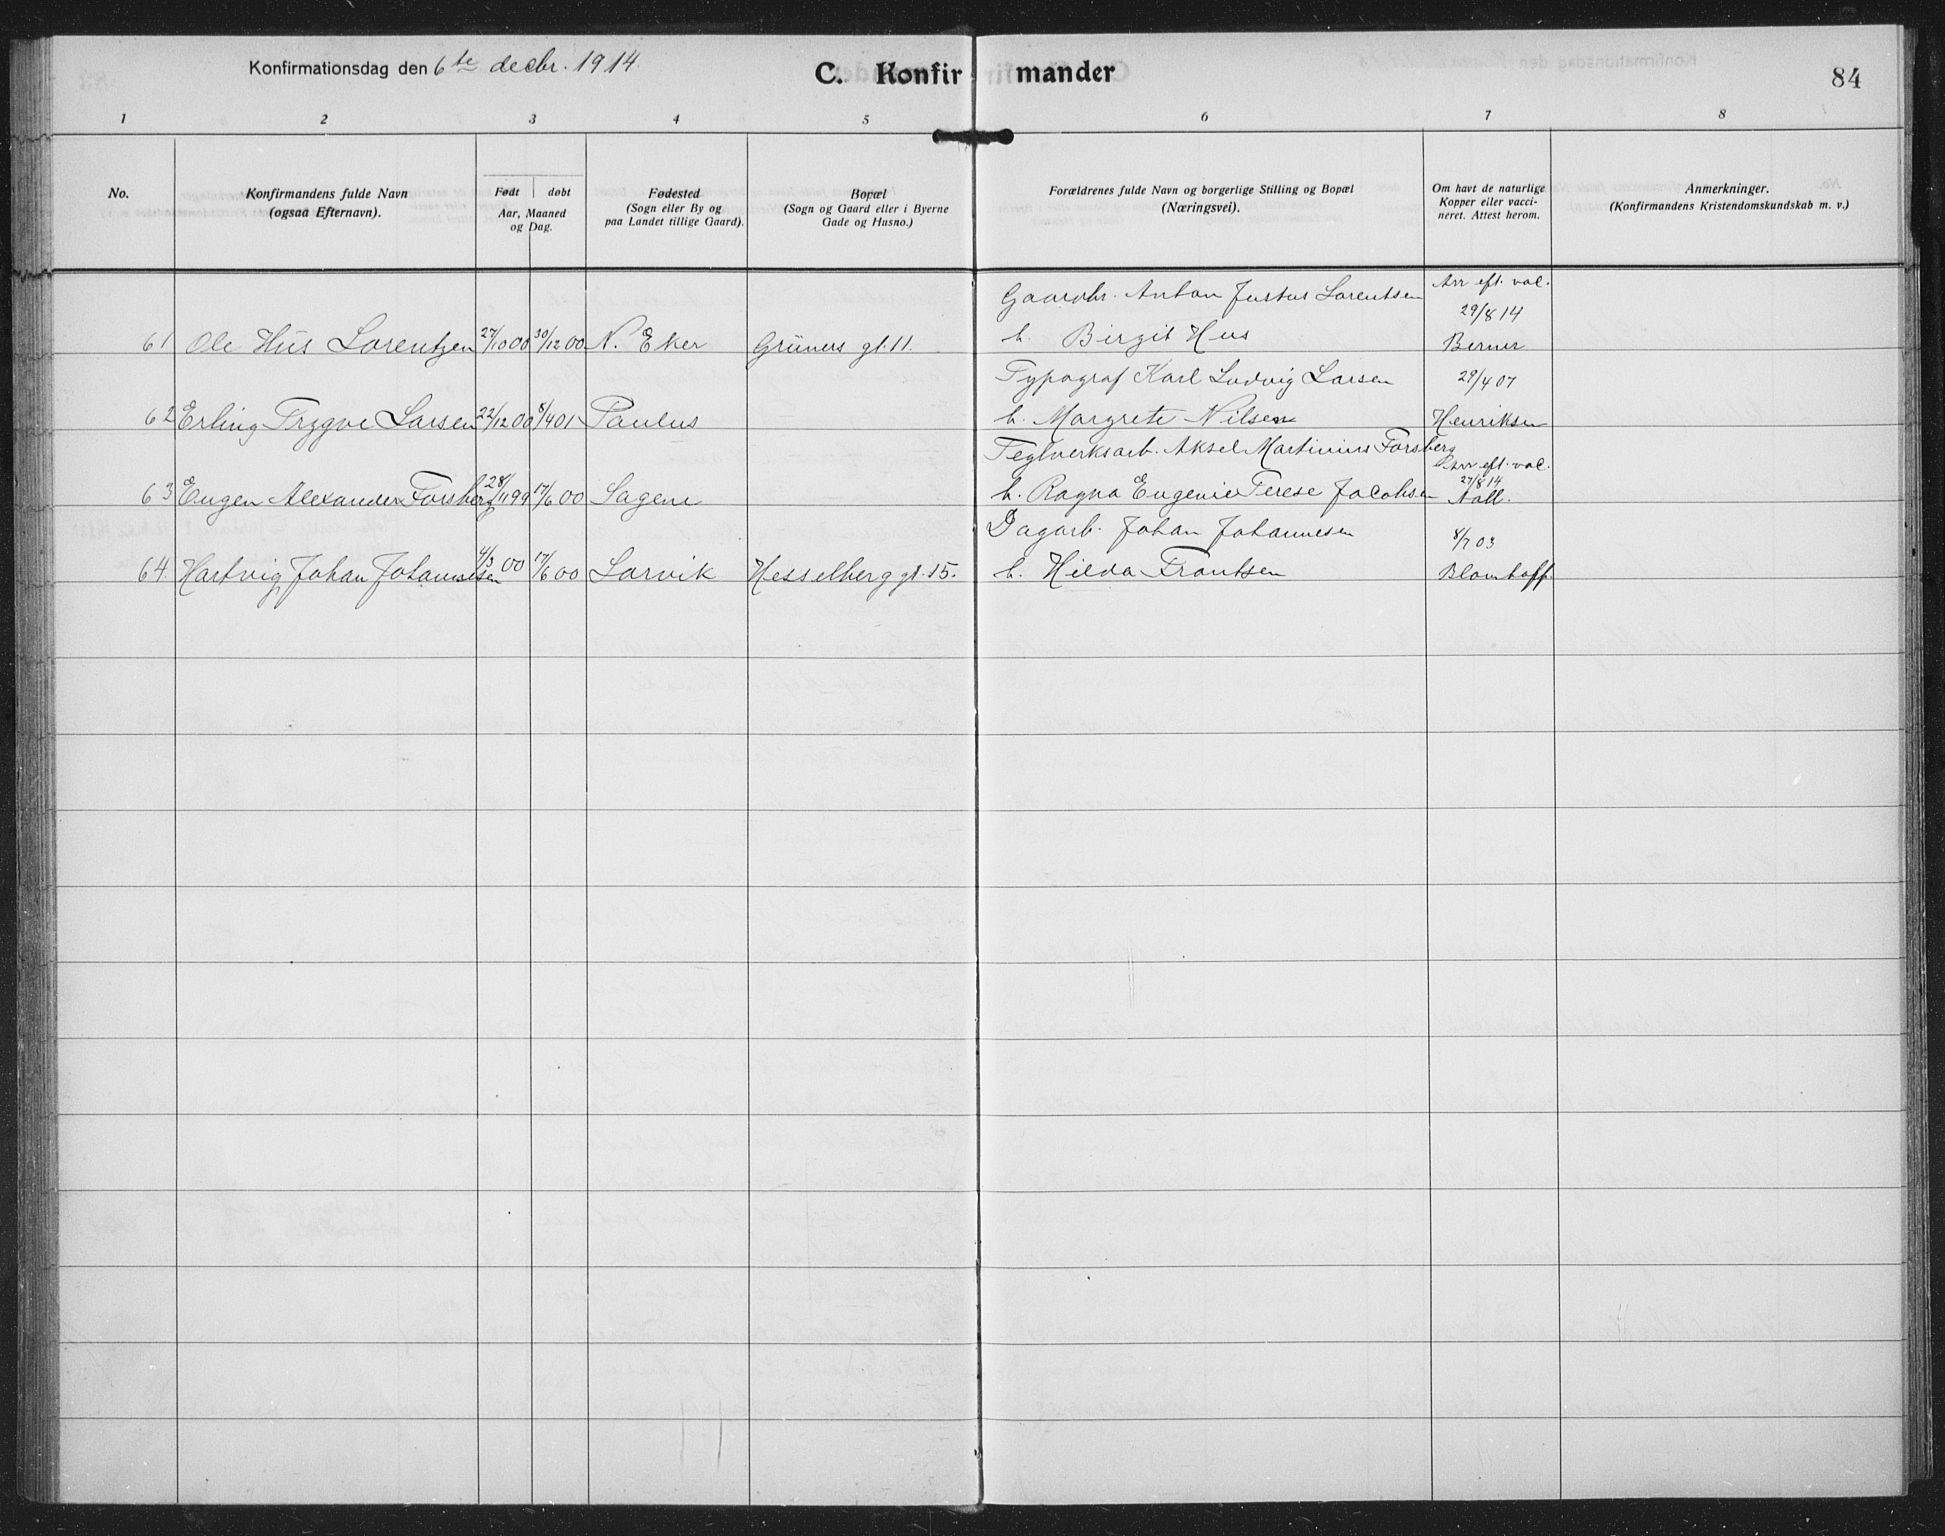 Konfirmationsdag den 6te decbr. 1914.
C. Konfirmander
84
1 2 3 4 5 6 7 8
No.
Konfirmandens fulde Navn
(ogsaa Efternavn).
Født døbt
Aar, Maaned
og Dag.
Fødested
(Sogn eller By og
paa Landet tillige Gaard).
Bopæl
(Sogn og Gaard eller i Byerne
Gade og Husno.)
Forældrenes fulde Navn og borgerlige Stilling og Bopæl
(Næringsvei).
Om havt de naturlige
Kopper eller vacci-
neret. Attest herom.
Anmerkninger.
(Konfirmandens Kristendomskundskab m. v.)
Gaardbr. Anton Justus Lorentsen Arr eft. vac.
29/8 14
61 Ole Hus Lorentzen 27/10 00 30/12 00 N. Eker Grüners gt. 11. h. Birgit Hus Berner
Typograf Karl Ludvig Larsen 29/4 07
62 Erling Trygve Larsen 22/12 00 8/4 01 Paulus h. Margrete Nilsen Henriksen
Teglverksarb. Aksel Martinius Forsberg Arr eft. vac.
27/8 14
63 Eugen Alexander Forsberg 28/11 99 17/6 00 Sagene h. Ragna Eugenie Terese Jacobsen
Dagarb. Johan Johannesen 8/7 03
64 Hartvig Johan Johannesen 4/3 00 17/6 00 Larvik Hesselberg gt. 15. h. Hilda Frantsen Blomhoff